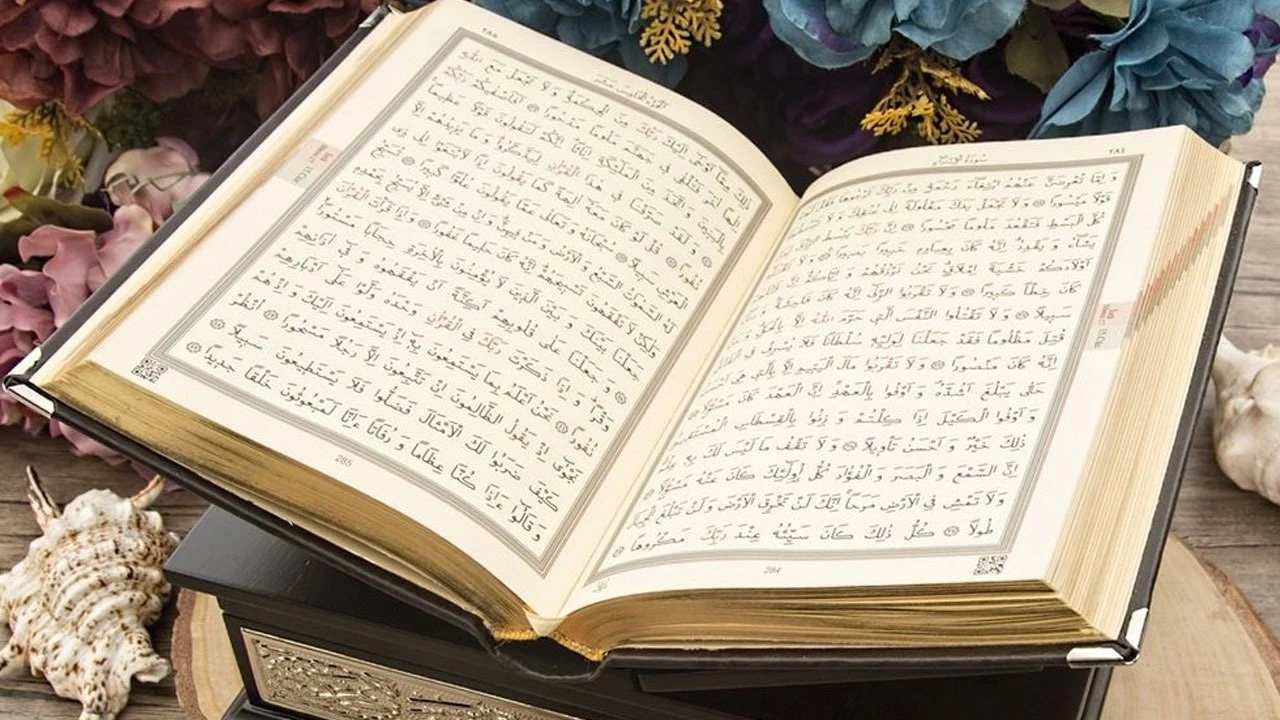 ٢٨٤ سُورَةُ الْاِسْرَاءِ
وَ اِمَّا تُعْرِضَنَّ عَنْهُمُ ابْتِغَاءَ رَحْمَةٍ مِنْ رَبِّكَ تَرْجُوهَا
قَوْلًا مَيْسُورًا وَ لَا تَجْعَلْ يَدَكَ مَغْلُولَةً اِلٰى عُنُقِكَ وَ لَا
كُلَّ الْبَسْطِ فَتَقْعُدَ مَلُومًا مَحْسُورًا اِنَّ رَبَّكَ يَبْسُطُ
يَشَاءُ وَ يَقْدِرُ اِنَّهُ كَانَ بِعِبَادِهِ خَبِيرًا بَصِيرًا
اَوْلَادَكُمْ خَشْيَةَ اِمْلَاقٍ نَحْنُ نَرْزُقُهُمْ وَ اِيَّاكُمْ
كَانَ خِطْـًٔا كَبِيرًا وَ لَا تَقْرَبُوا الزِّنٰى اِنَّهُ كَانَ فَاحِشَةً
سَبِيلًا وَ لَا تَقْتُلُوا النَّفْسَ الَّتِي حَرَّمَ اللّٰهُ اِلَّا بِالْحَقِّ
قُتِلَ مَظْلُومًا فَقَدْ جَعَلْنَا لِوَلِيِّهِ سُلْطَانًا فَلَا يُسْرِفْ فِي
اِنَّهُ كَانَ مَنْصُورًا وَ لَا تَقْرَبُوا مَالَ الْيَتِيمِ اِلَّا بِالَّتِي هِيَ
حَتّٰى يَبْلُغَ اَشُدَّهُ وَ اَوْفُوا بِالْعَهْدِ اِنَّ الْعَهْدَ كَانَ مَسْؤُلًا
وَ اَوْفُوا الْكَيْلَ اِذَا كِلْتُمْ وَ زِنُوا بِالْقِسْطَاسِ الْمُسْتَقِيمِ
ذٰلِكَ خَيْرٌ وَ اَحْسَنُ تَأْوِيلًا وَ لَا تَقْفُ مَا لَيْسَ لَكَ بِهِ عِلْمٌ
اِنَّ السَّمْعَ وَ الْبَصَرَ وَ الْفُؤَادَ كُلُّ اُولٰئِكَ كَانَ عَنْهُ مَسْؤُلًا
وَ لَا تَمْشِ فِي الْاَرْضِ مَرَحًا اِنَّكَ لَنْ تَخْرِقَ الْاَرْضَ وَ لَنْ تَبْلُغَ الْجِبَالَ
طُولًا كُلُّ ذٰلِكَ كَانَ سَيِّئُهُ عِنْدَ رَبِّكَ مَكْرُوهًا
284
٢٨٥ اَلْجُزْءُ الْخَامِسَ عَشَرَ
ذٰلِكَ مِمَّا اَوْحٰى اِلَيْكَ رَبُّكَ مِنَ الْحِكْمَةِ وَ لَا تَجْعَلْ مَعَ اللّٰهِ
اِلٰهًا اٰخَرَ فَتُلْقٰى فِي جَهَنَّمَ مَلُومًا مَدْحُورًا اَفَاَصْفٰيكُمْ رَبُّكُمْ
بِالْبَنِينَ وَ اتَّخَذَ مِنَ الْمَلٰئِكَةِ اِنَاثًا اِنَّكُمْ لَتَقُولُونَ قَوْلًا عَظِيمًا
وَ لَقَدْ صَرَّفْنَا فِي هٰذَا الْقُرْاٰنِ لِيَذَّكَّرُوا وَ مَا يَزِيدُهُمْ اِلَّا
نُفُورًا قُلْ لَوْ كَانَ مَعَهُ اٰلِهَةٌ كَمَا يَقُولُونَ اِذًا لَابْتَغَوْا اِلٰى ذِي
الْعَرْشِ سَبِيلًا سُبْحَانَهُ وَ تَعَالٰى عَمَّا يَقُولُونَ عُلُوًّا كَبِيرًا تُسَبِّحُ
لَهُ السَّمٰوَاتُ السَّبْعُ وَ الْاَرْضُ وَ مَنْ فِيهِنَّ وَ اِنْ مِنْ شَيْءٍ اِلَّا يُسَبِّحُ بِحَمْدِهِ
وَ لٰكِنْ لَا تَفْقَهُونَ تَسْبِيحَهُمْ اِنَّهُ كَانَ حَلِيمًا غَفُورًا وَ اِذَا قَرَأْتَ الْقُرْاٰنَ
جَعَلْنَا بَيْنَكَ وَ بَيْنَ الَّذِينَ لَا يُؤْمِنُونَ بِالْاٰخِرَةِ حِجَابًا مَسْتُورًا
وَ جَعَلْنَا عَلٰى قُلُوبِهِمْ اَكِنَّةً اَنْ يَفْقَهُوهُ وَ فِي اٰذَانِهِمْ
وَقْرًا وَ اِذَا ذَكَرْتَ رَبَّكَ فِي الْقُرْاٰنِ وَحْدَهُ وَلَّوْا عَلٰى اَدْبَارِهِمْ
نُفُورًا نَحْنُ اَعْلَمُ بِمَا يَسْتَمِعُونَ بِهِ اِذْ يَسْتَمِعُونَ اِلَيْكَ وَ اِذْ هُمْ
نَجْوٰى اِذْ يَقُولُ الظَّالِمُونَ اِنْ تَتَّبِعُونَ اِلَّا رَجُلًا مَسْحُورًا اُنْظُرْ
كَيْفَ ضَرَبُوا لَكَ الْاَمْثَالَ فَضَلُّوا فَلَا يَسْتَطِيعُونَ سَبِيلًا
وَ قَالُوا ءَاِذَا كُنَّا عِظَامًا وَ رُفَاتًا ءَاِنَّا لَمَبْعُوثُونَ خَلْقًا جَدِيدًا
285